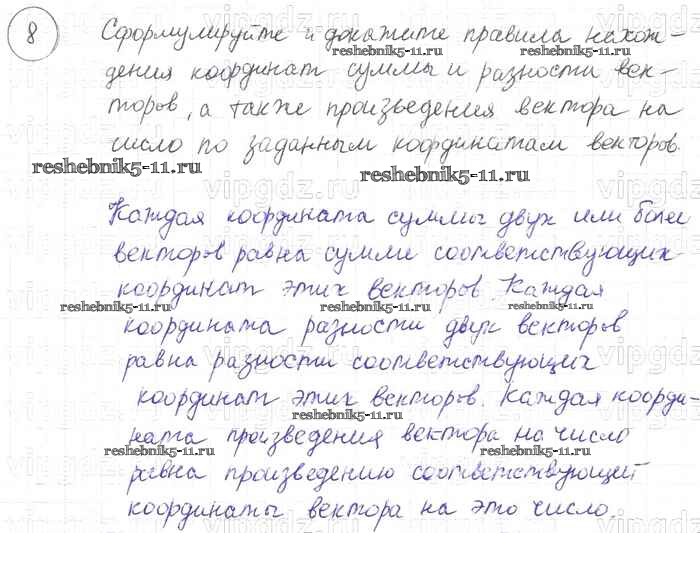 8
Сформулируйте и докажите правила нахож-
reshebnik5-11.ru
дения координат суммы и разности век-
торов, а также произведения вектора на
число по заданным координатам векторов.
reshebnik5-11.ru
reshebnik5-11.ru
Каждая координата суммы двух или более
векторов равна сумме соответствующих
координат этих векторов. Каждая
reshebnik5-11.ru
reshebnik5-11.ru
reshebnik5-11.ru
координата разности двух векторов
равна разности соответствующих
координат этих векторов. Каждая коорди-
reshebnik5-11.ru
ната произведения вектора на число
равна произведению соответствующей
координаты вектора на это число.